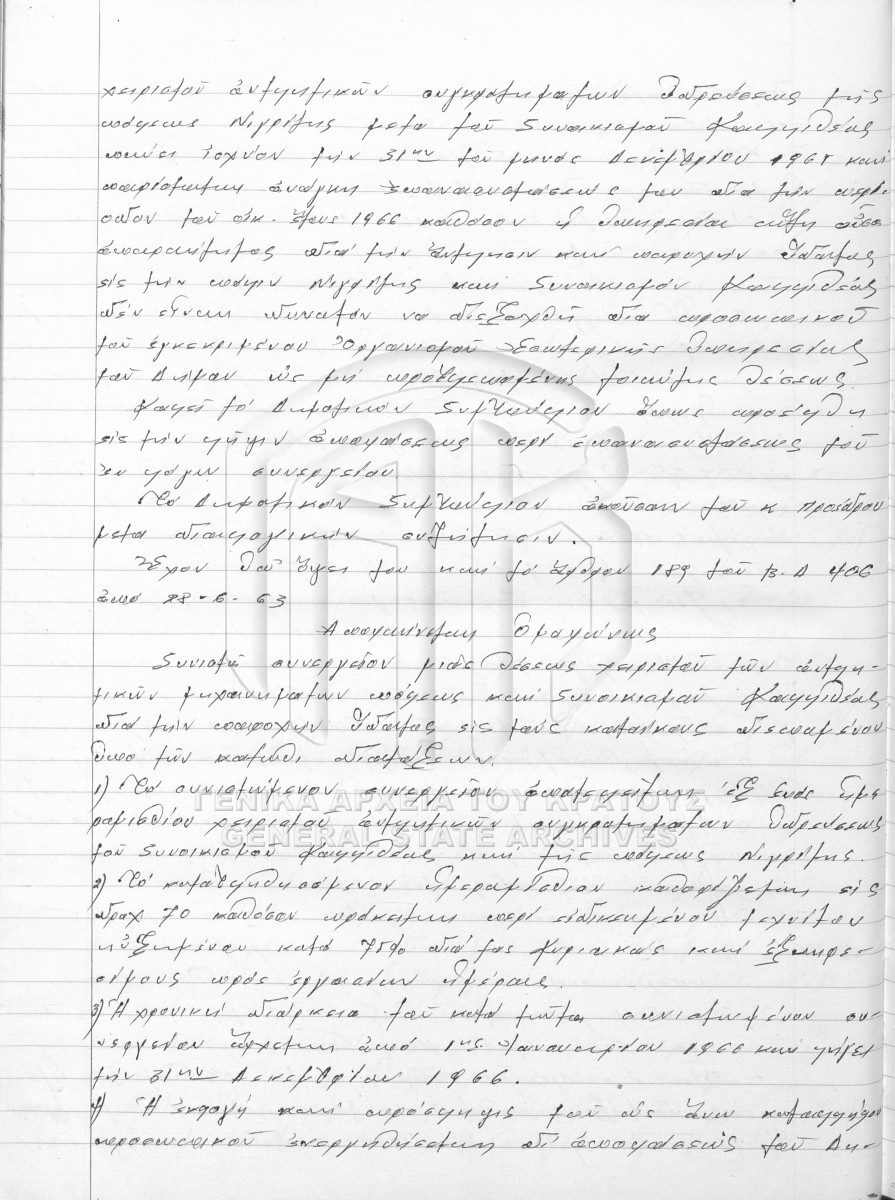 χειρισμοῦ ἀντλητικῶν συγκροτημάτων Ὑδρεύσεως τῆς
πόλεως Νιγρίτης μετά τοῦ Συνοικισμοῦ Καλλιθέας
παύει ἰσχύον τήν 31ην τοῦ μηνός Δεκεμβρίου 1965 καί
παρίσταται ἀνάγκη ἐπανασυστάσεώς του διά τήν περί-
οδον τοῦ οἰκ. ἔτους 1966 καθόσον ἡ ὑπηρεσία αὕτη οὖσα
ἀπαραίτητος διά τήν ἄντλησιν καί παροχήν ὕδατος
εἰς τήν πόλιν Νιγρίτης καί Συνοικισμόν Καλλιθέας
δέν εἶναι δυνατόν νά διεξαχθῇ διά προσωπικοῦ
τοῦ ἐγκεκριμένου Ὀργανισμοῦ Ἐσωτερικῆς Ὑπηρεσίας
τοῦ Δήμου ὡς μή προβλεπομένης τοιαύτης θέσεως.
Καλεῖ τό Δημοτικόν Συμβούλιον ὅπως προέλθῃ
εἰς τήν λῆψιν ἀποφάσεως περί ἐπανασυστάσεως τοῦ
ἐν λόγῳ συνεργείου.
Τό Δημοτικόν Συμβούλιον ἀκοῦσαν τοῦ κ. Προέδρου
μετά διαλογικήν συζήτησιν.
Ἔχον ὑπ' ὄψει του καί τό ἄρθρον 189 τοῦ Β.Δ 406
ἀπό 28-6-63
Ἀποφαίνεται Ὁμοφώνως
Συνιστᾷ συνεργεῖον μιᾶς θέσεως χειρισμοῦ τῶν ἀντλη-
τικῶν μηχανημάτων πόλεως καί Συνοικισμοῦ Καλλιθέας
διά τήν παροχήν ὕδατος εἰς τούς κατοίκους διεπομένου
ὑπό τῶν κάτωθι διατάξεων.
1) Τό συνιστώμενον συνεργεῖον ἀποτελεῖται ἐξ ἑνός ἡμε-
ρομισθίου χειριστοῦ ἀντλητικῶν συγκροτημάτων ὑδρεύσεως
τοῦ Συνοικισμοῦ Καλλιθέας καί τῆς πόλεως Νιγρίτης.
2) Τό καταβληθησόμενον ἡμερομίσθιον καθορίζεται εἰς
δραχ 70 καθόσον πρόκειται περί εἰδικευμένου τεχνίτου
ηὐξημένου κατά 75% διά τάς Κυριακάς καί ἐξαιρε-
σίμους πρός ἐργασίαν ἡμέρας.
3) Ἡ χρονική διάρκεια τοῦ κατά ταῦτα συνιστωμένου συ-
νεργείου ἄρχεται ἀπό 1ης Ἰανουαρίου 1966 καί λήγει
τήν 31ην Δεκεμβρίου 1966.
4) Ἡ ἐκλογή καί πρόσληψις τοῦ ὡς ἄνω καταλλήλου
προσωπικοῦ ἐνεργηθήσεται δι' ἀποφάσεως τοῦ Δη-
ΓΕΝΙΚΑ ΑΡΧΕΙΑ ΤΟΥ ΚΡΑΤΟΥΣ
GENERAL STATE ARCHIVES